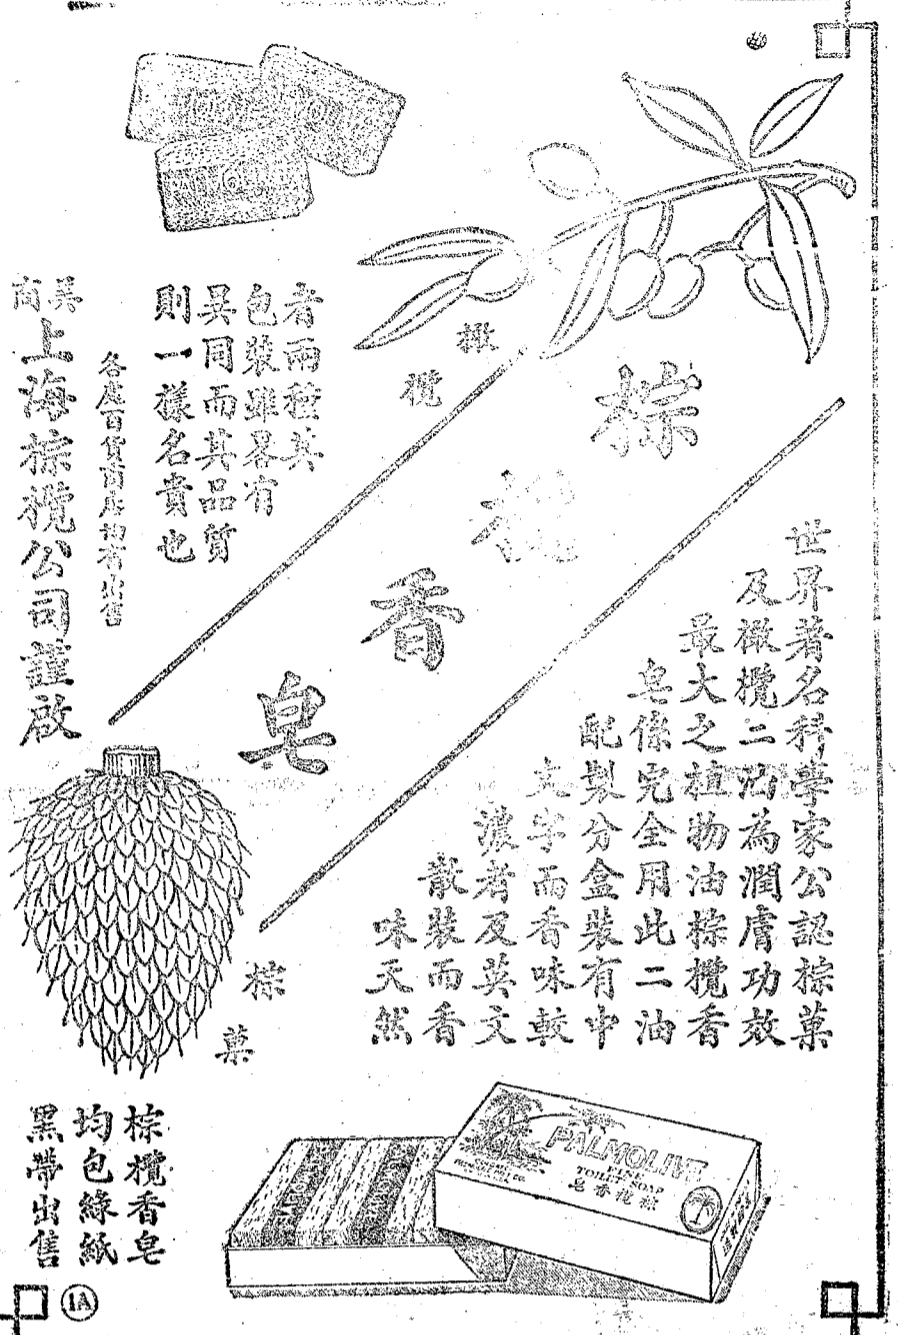 棕欖香皂
橄欖
世界著名科學家公認棕菓
及橄欖二油為潤膚功效
最大之植物油棕欖香
皂係完全用此二油
配製分盒裝有中
文字而香味較
濃者及英文
散裝而香
味天然
者兩種其
包裝雖畧有
異同而其品質
則一樣名貴也
各處百貨商店均有出售
英商
上海棕欖公司謹啟
棕菓
棕欖香皂
均包綠紙
黑帶出售
PALMOLIVE
FINE
TOILET SOAP
棕欖香皂
1A